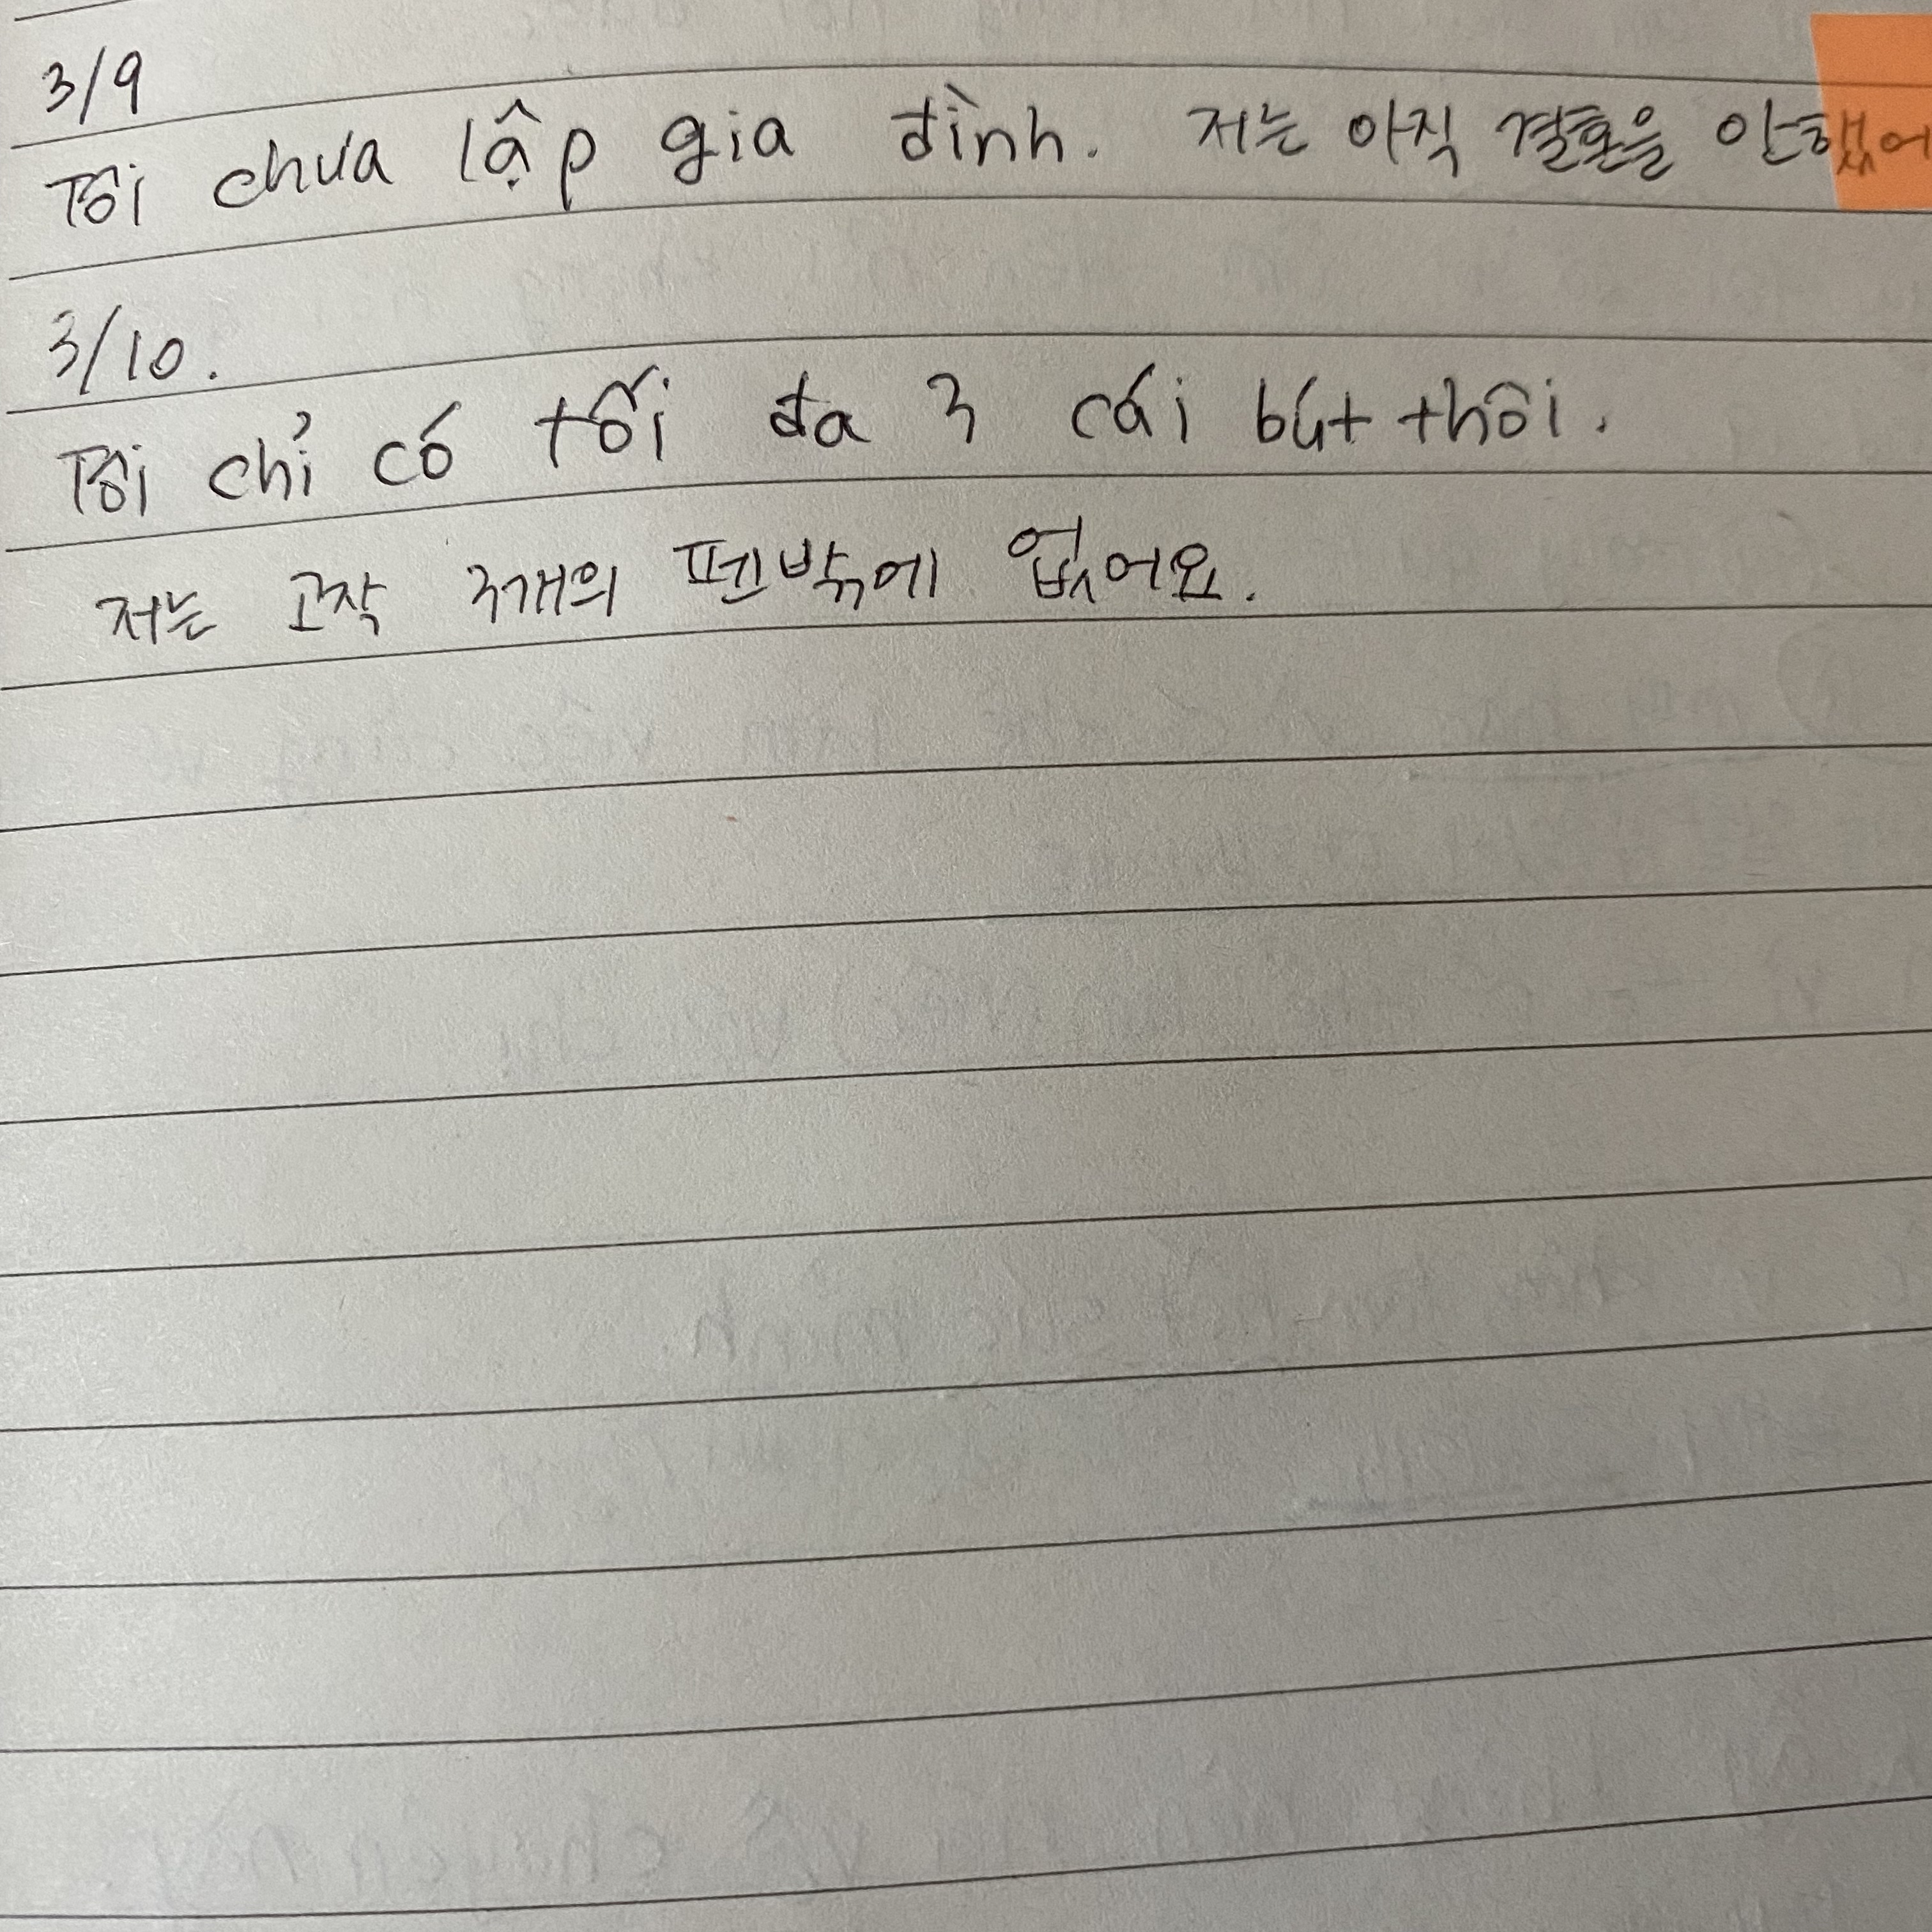 3/9
Tôi chưa lập gia đình. 저는 아직 결혼을 안했어
3/10.
Tôi chỉ có tối đa 3 cái bút thôi.
저는 고작 3개의 펜밖에 없어요.